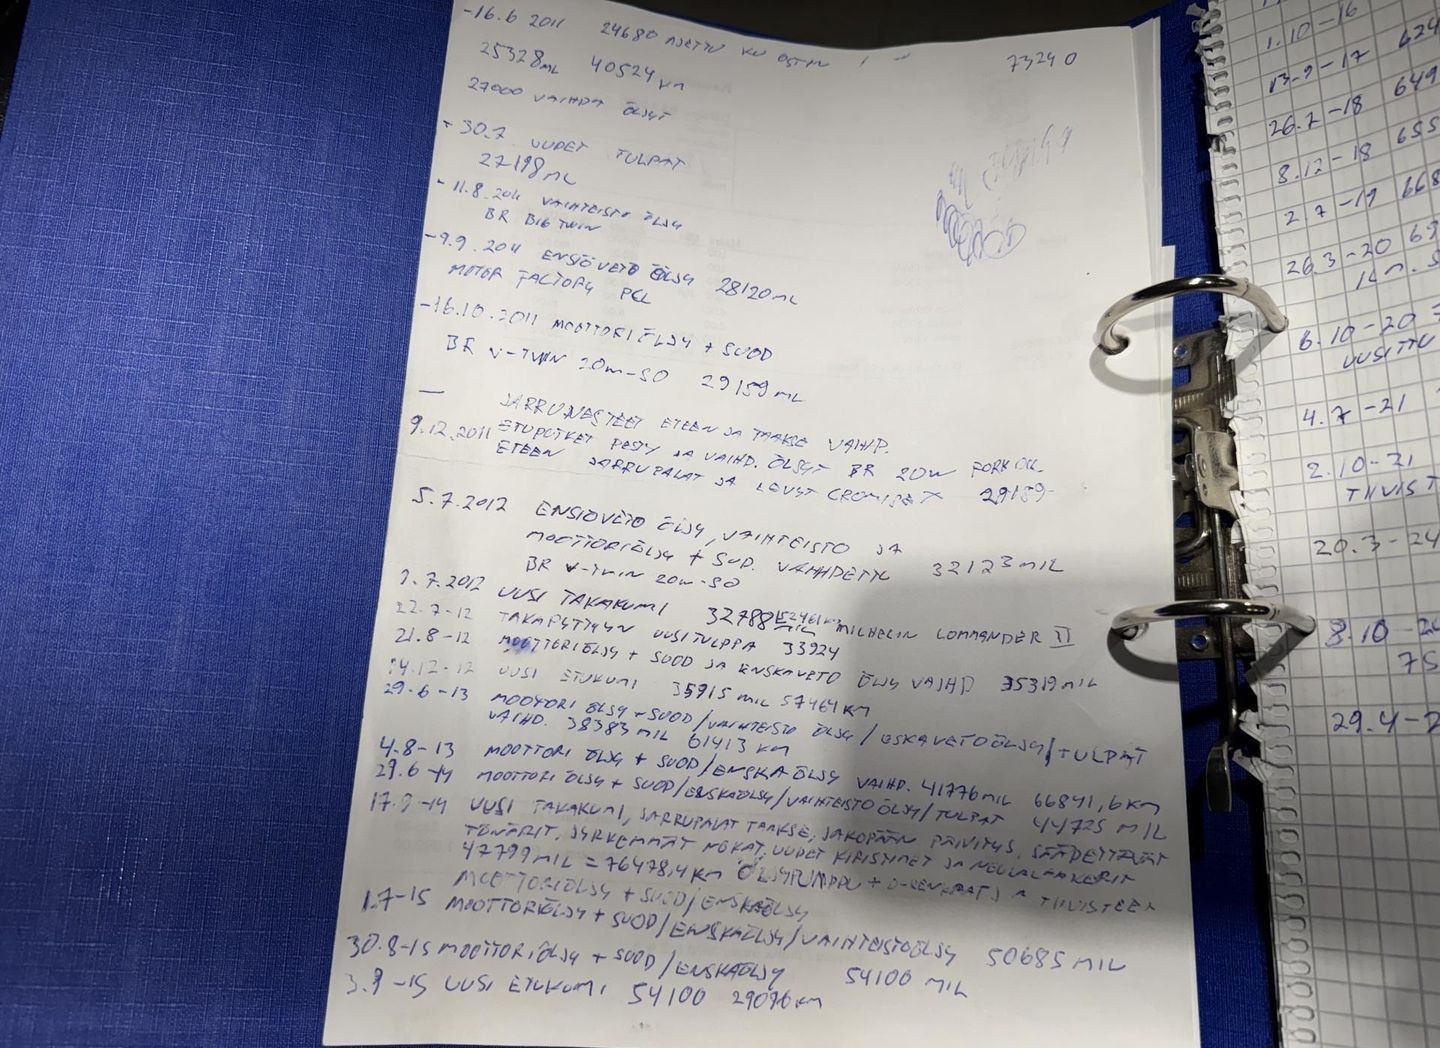 -16.6 2011 24680 AJETTU KU OSTIN
73240
25328ML 40524KM
27000 VAIHDA ÖLJYT
+ 30.7 UUDET TULPAT
27198ML
- 11.8.2011 VAIHTEISTO ÖLJY
BR BIG TWIN
-9.9.2011 ENSIÖVETO ÖLJY 28120ML
MOTOR FACTORY PCL
-16.10.2011 MOOTTORI ÖLJY + SUOD
BR V-TWIN 20W-50 29159ML
— JARRUNESTEET ETEEN JA TAAKSE VAIHD.
9.12.2011 ETUPUTKET PESTY JA VAIHD. ÖLJYT BR 20W FORK OIL
ETEEN JARRUPALAT JA LEVYT CROMISET 29159-
5.7.2012 ENSIOVETO ÖLJY, VAIHTEISTO JA
MOOTTORIÖLJY + SUD. VAIHDETTU 32123MIL
BR V-TWIN 20W-50
9.7.2012 UUSI TAKAKUMI 32788MIL MICHELIN COMMANDER II
22.7-12 TAKAPYTTYYN UUSI TULPPA 33924
21.8-12 MOOTTORIÖLJY + SUOD JA ENSKAVETO ÖLJY VAIHD 35319MIL
14.12-12 UUSI ETUKUMI 35915 MIL 57464KM
29.6-13 MOOTORI ÖLJY + SUOD/VAIHTEISTO ÖLJY/ESKAVETOÖLJY/TULPAT
VAIHD. 38383 MIL 61413 KM
4.8-13 MOOTTORI ÖLJY + SUOD/ENSKA ÖLJY VAIHD. 41776MIL 66841,6KM
29.6-14 MOOTTORI ÖLJY + SUOD/ENSKAÖLJY/VAIHTEISTO ÖLJY/TULPAT 44725 MIL
17.9-14 UUSI TAKAKUMI, JARRUPALAT TAAKSE, JAKOPÄÄN PÄIVITYS, SÄÄDETTÄVÄT
TÖNÄRIT, JYRKEMMÄT NOKAT, UUDET KIRISTIMET JA NEULALAAKERIT
47799MIL = 76478,4KM ÖLJYPUMPPU + O-RENKAAT JA TIIVISTEET
MOOTTORIÖLJY + SUOD/ENSKAÖLJY
1.7-15 MOOTTORIÖLJY + SUOD/ENSKAÖLJY/VAIHTEISTOÖLJY 50685 MIL
30.8-15 MOOTTORIÖLJY + SUOD/ENSKAÖLJY 54100 MIL
3.9-15 UUSI ETUKUMI 54100 29096KM
1.10-16
13.9-17 624
26.7-18 649
8.12-18 655
2.7-19 668
26.3-20 69
6.10-20 7
UUSITTU
4.7-21
2.10-21
TIIVIST
20.3-24
8.10-24
75
29.4-2